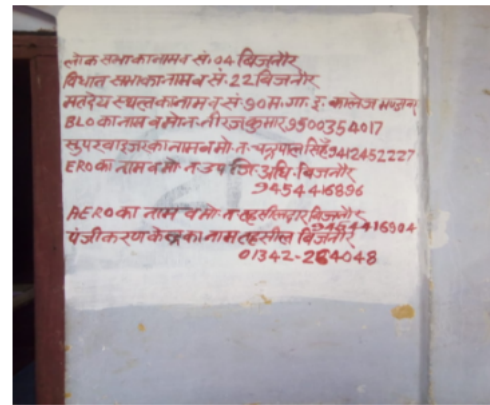 लोक सभा का नाम व सं. 04 बिजनौर
विधान सभा का नाम व सं. 22 बिजनौर
मतदेय स्थल का नाम व सं. 90 म. गा. इ. कालेज
BLO का नाम व मो.न. नीरज कुमार 9500354017
सुपरवाइजर का नाम व मो. न. चन्द्रपाल सिंह 9412452227
ERO का नाम व मो. न. उप जि. अधि. बिजनौर
9454416896
AERO का नाम व मो. न. तहसीलदार बिजनौर
9454416904
पंजीकरण केन्द्र का नाम तहसील बिजनौर
01342-264048